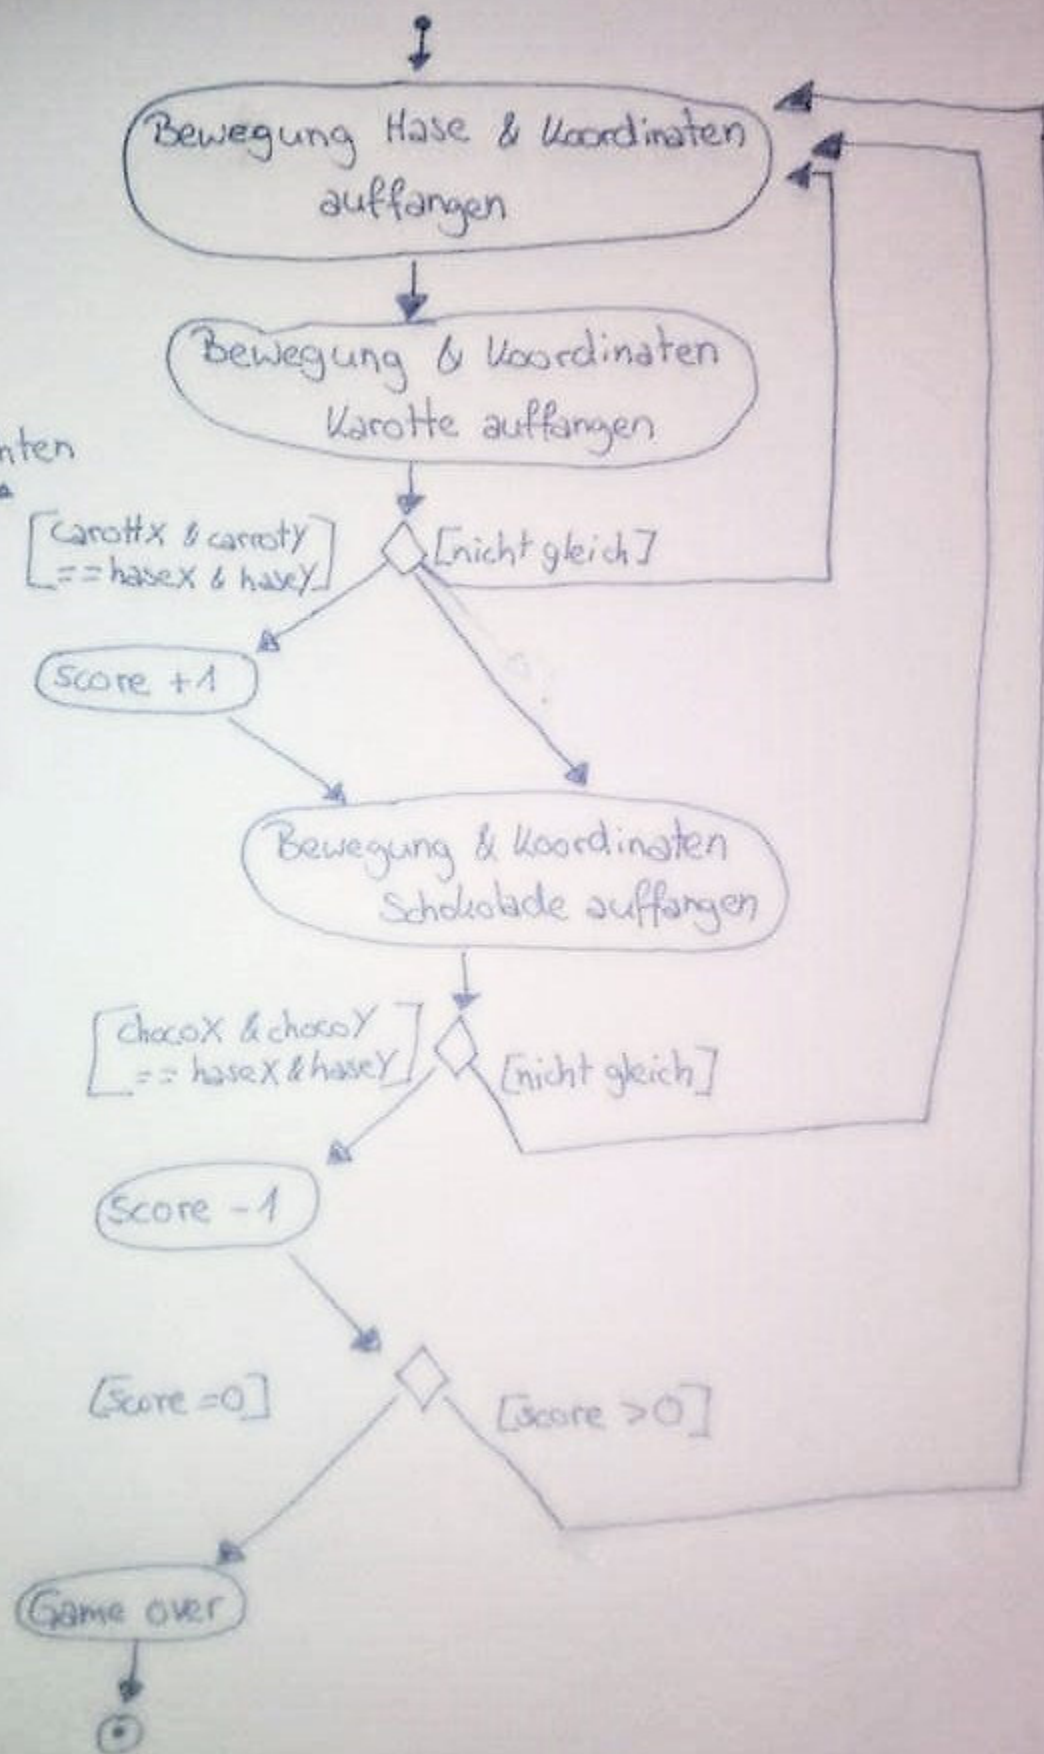 Bewegung Hase & Koordinaten
auffangen
Bewegung & Koordinaten
Karotte auffangen
nten
[carottX & carrotY
== haseX & haseY]
[nicht gleich]
Score +1
Bewegung & Koordinaten
Schokolade auffangen
[chocoX & chocoY
== haseX & haseY]
[nicht gleich]
Score -1
[Score =0]
[score >0]
Game over